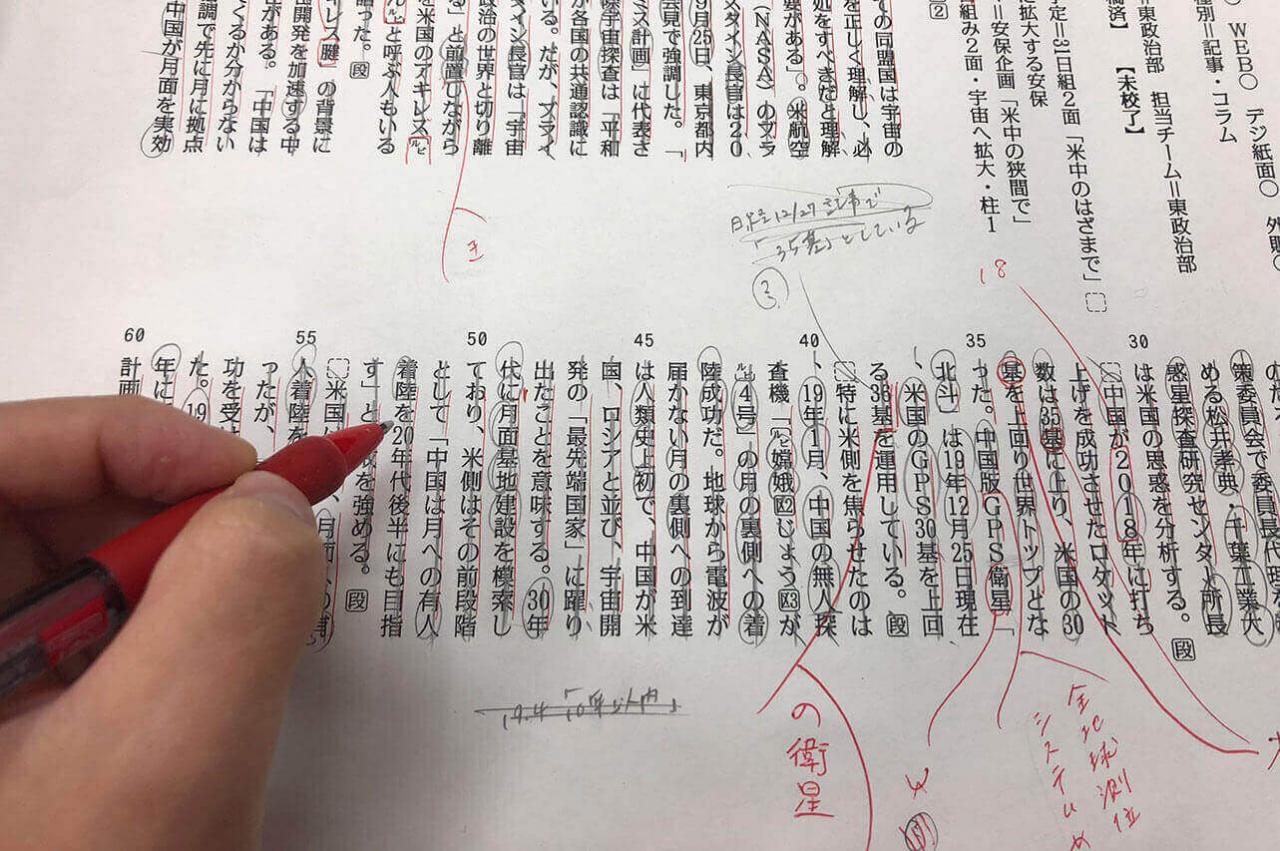 WEB○ デジ紙面○ 外販○
種別＝記事・コラム
＝東政治部 担当チーム＝東政治部
【未校了】
予定＝31日組2面「米中のはざまで」
＝安保企画「米中の狭間で」
に拡大する安保
組み2面・宇宙へ拡大・柱1
②
ての同盟国は宇宙の
を正しく理解し、必
処をすべきだと理解
要がある」。米航空
（NASA）のブラ
スタイン長官は20
9月25日、東京都内
会見で強調した。「
ミス計画」に代表さ
宇宙探査は「平和
が各国の共通認識に
いる。だが、ブライ
タイン長官は「宇宙
政治の世界と切り離
る」と前置しながら
を米国のアキレス
ルビ
と呼ぶ人もいる
語った。段
キレス腱」の背景に
宙開発を加速する中
がある。「中国は
くるか分からない
調で先に月に拠点
中国が月面を実効
王
日経12/27記事で
「35基」としている
③
18
30
35
40
45
50
55
60
策委員会で委員長代理
める松井孝典・千葉工業大
惑星探査研究センター所長
は米国の思惑を分析する。段
中国が2018年に打ち
上げを成功させたロケット
数は35基に上り、米国の30
基を上回り世界トップとな
った。中国版GPS衛星「
北斗」は19年12月25日現在
、米国のGPS30基を上回
る36基を運用している。段
特に米側を焦らせたのは
、19年1月、中国の無人探
査機「ルビ嫦娥区2じょう区3が
ルビ4号」の月の裏側への着
陸成功だ。地球から電波が
届かない月の裏側への到達
は人類史上初で、中国が米
国、ロシアと並び、宇宙開
発の「最先端国家」に躍り
出たことを意味する。30年
代に月面基地建設を模索し
ており、米側はその前段階
として「中国は月への有人
着陸を20年代後半にも目指
す」と
を強める。段
米国
月面
人着陸を
ったが、
功を受
た。19
年に
計画
の衛星
全地球測位
システム